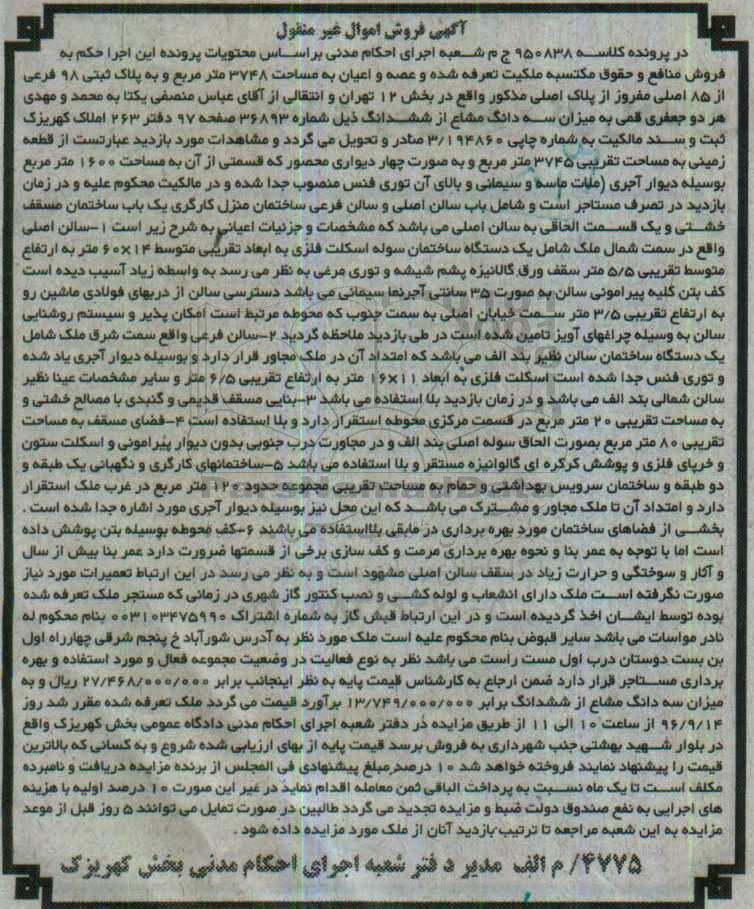 آگهی فروش اموال غیر منقول
در پرونده کلاسه ۹۵۰۸۳۸ ج م شعبه اجرای احکام مدنی براساس محتویات پرونده این اجرا حکم به
فروش منافع و حقوق مکتسبه ملکیت تعرفه شده و عصه و اعیان به مساحت ۳۷۴۸ متر مربع و به پلاک ثبتی ۹۸ فرعی
از ۸۵ اصلی مفروز از پلاک اصلی مذکور واقع در بخش ۱۲ تهران و انتقالی از آقای عباس منصفی یکتا به محمد و مهدی
هر دو جعفری قمی به میزان سه دانگ مشاع از ششدانگ ذیل شماره ۳۶۸۹۳ صفحه ۹۷ دفتر ۲۶۳ املاک کهریزک
ثبت و سند مالکیت به شماره چاپی ۳/۱۹۴۸۶۰ صادر و تحویل می گردد و مشاهدات مورد بازدید عبارتست از قطعه
زمینی به مساحت تقریبی ۳۷۴۵ متر مربع و به صورت چهار دیواری محصور که قسمتی از آن به مساحت ۱۶۰۰ متر مربع
بوسیله دیوار آجری (ملات ماسه و سیمانی و بالای آن توری فنس منصوب جدا شده و در مالکیت محکوم علیه و در زمان
بازدید در تصرف مستاجر است و شامل باب سالن اصلی و سالن فرعی ساختمان منزل کارگری یک باب ساختمان مسقف
خشتی و یک قسمت الحاقی به سالن اصلی می باشد که مشخصات و جزئیات اعیانی به شرح زیر است ۱-سالن اصلی
واقع در سمت شمال ملک شامل یک دستگاه ساختمان سوله اسکلت فلزی به ابعاد تقریبی متوسط ۱۴×۶۰ متر به ارتفاع
متوسط تقریبی ۵/۵ متر سقف ورق گالانیزه پشم شیشه و توری مرغی به نظر می رسد به واسطه زیاد آسیب دیده است
کف بتن کلیه پیرامونی سالن به صورت ۳۵ سانتی آجرنما سیمانی می باشد دسترسی سالن از دربهای فولادی ماشین رو
به ارتفاع تقریبی ۳/۵ متر سمت خیابان اصلی به سمت جنوب که محوطه مرتبط است امکان پذیر و سیستم روشنایی
سالن به وسیله چراغهای آویز تامین شده است در طی بازدید ملاحظه گردید ۲-سالن فرعی واقع سمت شرق ملک شامل
یک دستگاه ساختمان سالن نظیر بند الف می باشد که امتداد آن در ملک مجاور قرار دارد و بوسیله دیوار آجری یاد شده
و توری فنس جدا شده است اسکلت فلزی به ابعاد ۱۱×۱۶ متر به ارتفاع تقریبی ۶/۵ متر و سایر مشخصات عینا نظیر
سالن شمالی بند الف می باشد و در زمان بازدید بلا استفاده می باشد ۳-بنایی مسقف قدیمی و گنبدی با مصالح خشتی و
به مساحت تقریبی ۲۰ متر مربع در قسمت مرکزی محوطه استقرار دارد و بلا استفاده است ۴-فضای مسقف به مساحت
تقریبی ۸۰ متر مربع بصورت الحاق سوله اصلی بند الف و در مجاورت درب جنوبی بدون دیوار پیرامونی و اسکلت ستون
و خرپای فلزی و پوشش کرکره ای گالوانیزه مستقر و بلا استفاده می باشد ۵-ساختمانهای کارگری و نگهبانی یک طبقه و
دو طبقه و ساختمان سرویس بهداشتی و حمام به مساحت تقریبی مجموعه حدود ۱۲۰ متر مربع در غرب ملک استقرار
دارد و امتداد آن تا ملک مجاور و مشترک می باشد که این محل نیز بوسیله دیوار آجری مورد اشاره جدا شده است .
بخشی از فضاهای ساختمان مورد بهره برداری در مابقی بلااستفاده می باشند ۶-کف محوطه بوسیله بتن پوشش داده
است اما با توجه به عمر بنا و نحوه بهره برداری مرمت و کف سازی برخی از قسمتها ضرورت دارد عمر بنا بیش از سال
و آثار و سوختگی و حرارت زیاد در سقف سالن اصلی مشهود است و به نظر می رسد در این ارتباط تعمیرات مورد نیاز
صورت نگرفته است ملک دارای انشعاب و لوله کشی و نصب کنتور گاز شهری در زمانی که مستجر ملک تعرفه شده
بوده توسط ایشان اخذ گردیده است و در این ارتباط قبض گاز به شماره اشتراک ۰۰۳۱۰۳۴۷۵۹۹۰ بنام محکوم له
نادر مواسات می باشد سایر قبوض بنام محکوم علیه است ملک مورد نظر به آدرس شورآباد خ پنجم شرقی چهارراه اول
بن بست دوستان درب اول مست راست می باشد نظر به نوع فعالیت در وضعیت مجموعه فعال و مورد استفاده و بهره
برداری مستاجر قرار دارد ضمن ارجاع به کارشناس قیمت پایه به نظر اینجانب برابر ۲۷/۴۶۸/۰۰۰/۰۰۰ ریال و به
میزان سه دانگ مشاع از ششدانگ برابر ۱۳/۷۴۹/۰۰۰/۰۰۰ برآورد قیمت می گردد ملک تعرفه شده مقرر شد روز
۹۶/۹/۱۴ از ساعت ۱۰ الی ۱۱ از طریق مزایده در دفتر شعبه اجرای احکام مدنی دادگاه عمومی بخش کهریزک واقع
در بلوار شهید بهشتی جنب شهرداری به فروش برسد قیمت پایه از بهای ارزیابی شده شروع و به کسانی که بالاترین
قیمت را پیشنهاد نمایند فروخته خواهد شد ۱۰ درصد مبلغ پیشنهادی فی المجلس از برنده مزایده دریافت و نامبرده
مکلف است تا یک ماه نسبت به پرداخت الباقی ثمن معامله اقدام نماید در غیر این صورت ۱۰ درصد اولیه با هزینه
های اجرایی به نفع صندوق دولت ضبط و مزایده تجدید می گردد طالبین در صورت تمایل می توانند ۵ روز قبل از موعد
مزایده به این شعبه مراجعه تا ترتیب بازدید آنان از ملک مورد مزایده داده شود .
۴۷۷۵/ م الف مدیر دفتر شعبه اجرای احکام مدنی بخش کهریزک